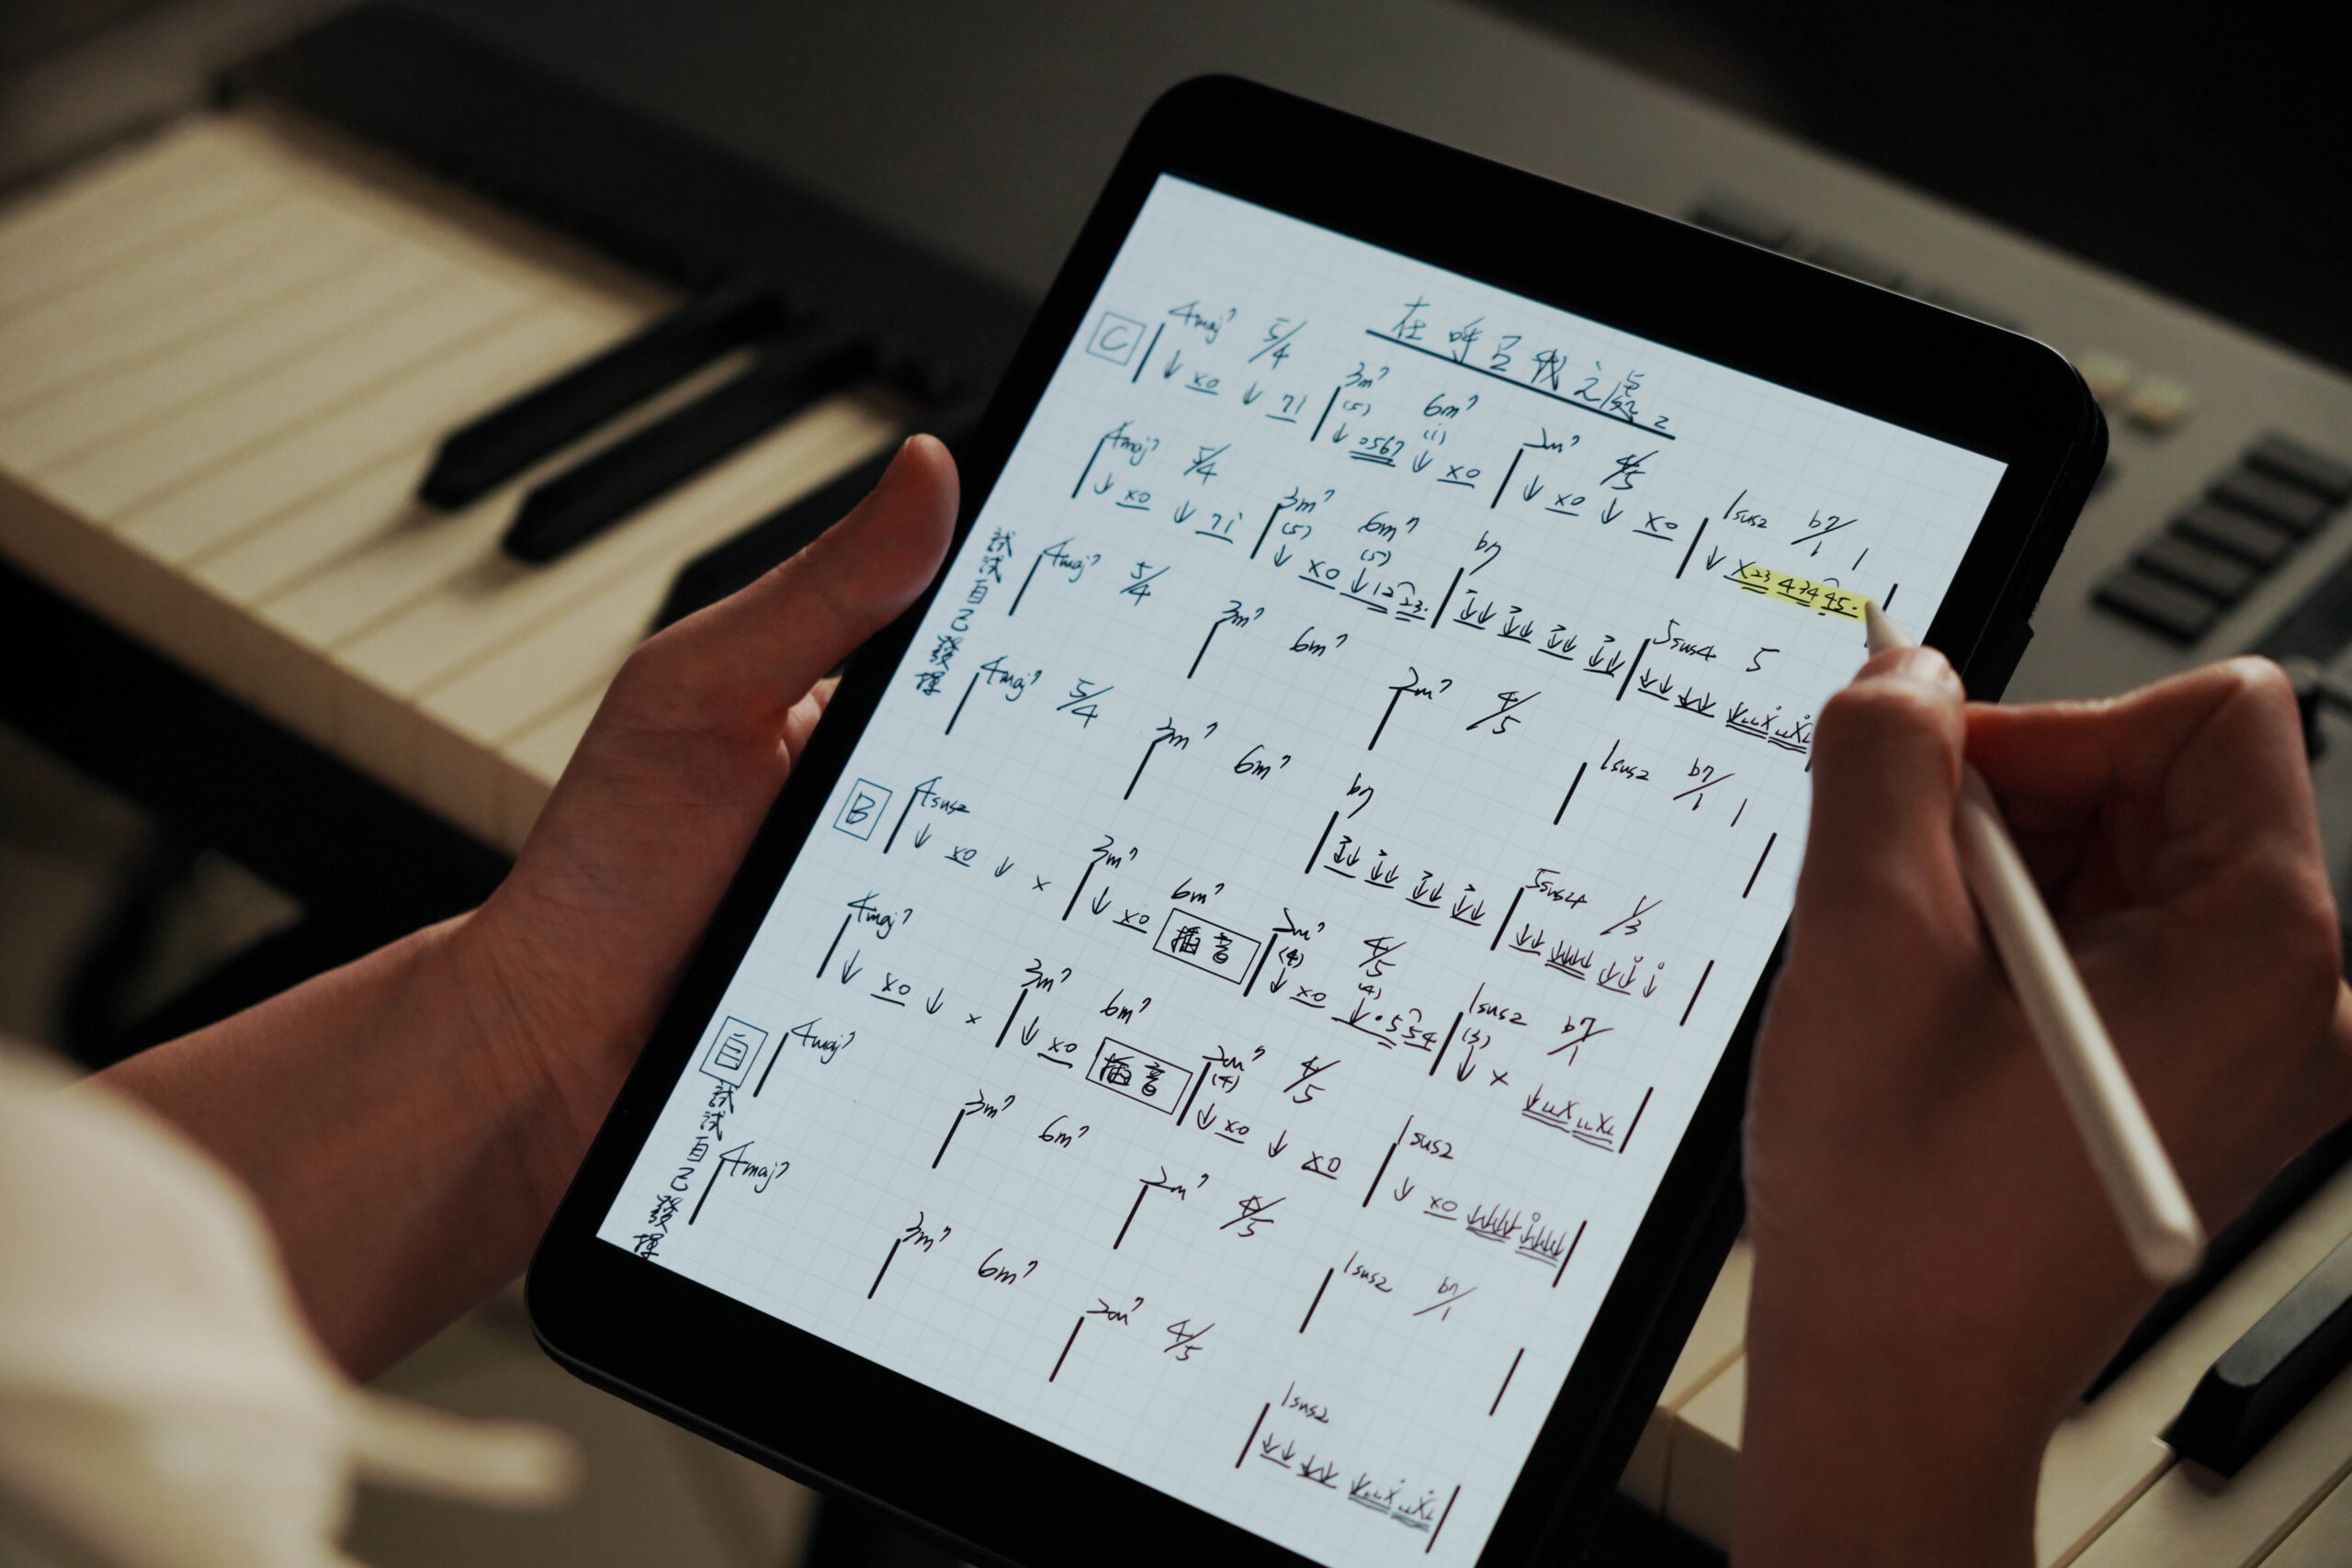 在呼召我之處 2
C 4maj7 5/4 | 3m7 6m7 | 2m7 4/5 | 1sus2 b7/1 1 |
↓ x0 ↓ 71 (5) ↓ 0567 (i) ↓ x0 ↓ x0 ↓ x0 ↓ x23 4 34 45.
4maj7 5/4 | 3m7 6m7 | b7 | 5sus4 5
↓ x0 ↓ 71 (5) ↓ x0 (5) ↓ 12 23.
試試自己發揮
4maj7 5/4 | 3m7 6m7 | 2m7 4/5 | 1sus2 b7/1 1 |
4maj7 5/4 | 3m7 6m7 | b7 | 5sus4 1/3 |
B 4sus2 | 3m7 6m7 | 2m7 4/5 | 1sus2 b7/1 |
↓ x0 ↓ x ↓ x0 插音 (4) ↓ x0 (4) ↓ . 5 54 (3) ↓ x
4maj7 | 3m7 6m7 | 2m7 4/5 | 1sus2 |
↓ x0 ↓ x ↓ x0 插音 (4) ↓ x0 ↓ x0 ↓ x0
目 試試自己發揮
4maj7 | 3m7 6m7 | 2m7 4/5 | 1sus2 b7/1 |
4maj7 | 3m7 6m7 | 2m7 4/5 | 1sus2 |